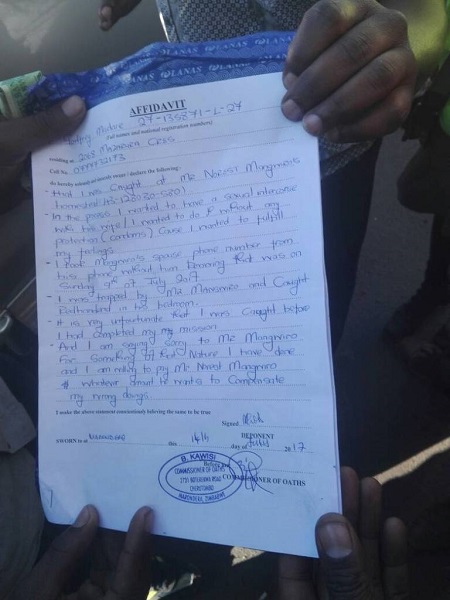 LANAS LANAS LANAS
AFFIDAVIT
27-135871-L-27
(full names and national registration numbers)
residing at 2008 Cres
Call No. 0777732173
do hereby solemnly swear / declare the following:
- That I was Caught at Mr Norest
homestead
- In the process I wanted to have a sexual intercourse
with his wife I wanted to do it without any
protection (condoms) Cause I wanted to fulfill
my feelings.
- I took spouse phone number from
phone without him knowing that was on
Sunday 9th of July 2017
- I was trapped by Mr and Caught
Redhanded in his bedroom.
- It is very unfortunate that I was Caught before
I had completed my mission
- And I am saying sorry to Mr
For something of that Nature I have done
and I am willing to pay Mr Norest
whatever amount he wants to Compensate
my wrong doings.
I make the above statement conscientiously believing the same to be true
Signed
DEPONENT
SWORN to at this 14th day of July 2017
Before me
COMMISSIONER OF OATHS
B. KAWISI
COMMISSIONER OF OATHS
ROAD
CHERUTOMBO
MARONDERA, ZIMBABWE